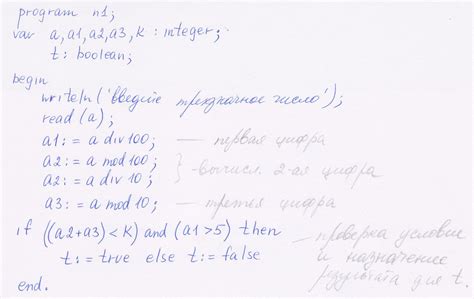 program n1;
var a,a1,a2,a3,K : integer;
t: boolean;
begin
writeln('введите трехзначное число');
read (a);
a1:= a div 100; — первая цифра
a2:= a mod 100;
a2:= a div 10; } -вычисл. 2-ая цифра
a3:= a mod 10; — третья цифра
if ((a2+a3) < K) and (a1 >5) then — проверка условия
t:= true else t:= false и назначение
результата для t.
end.